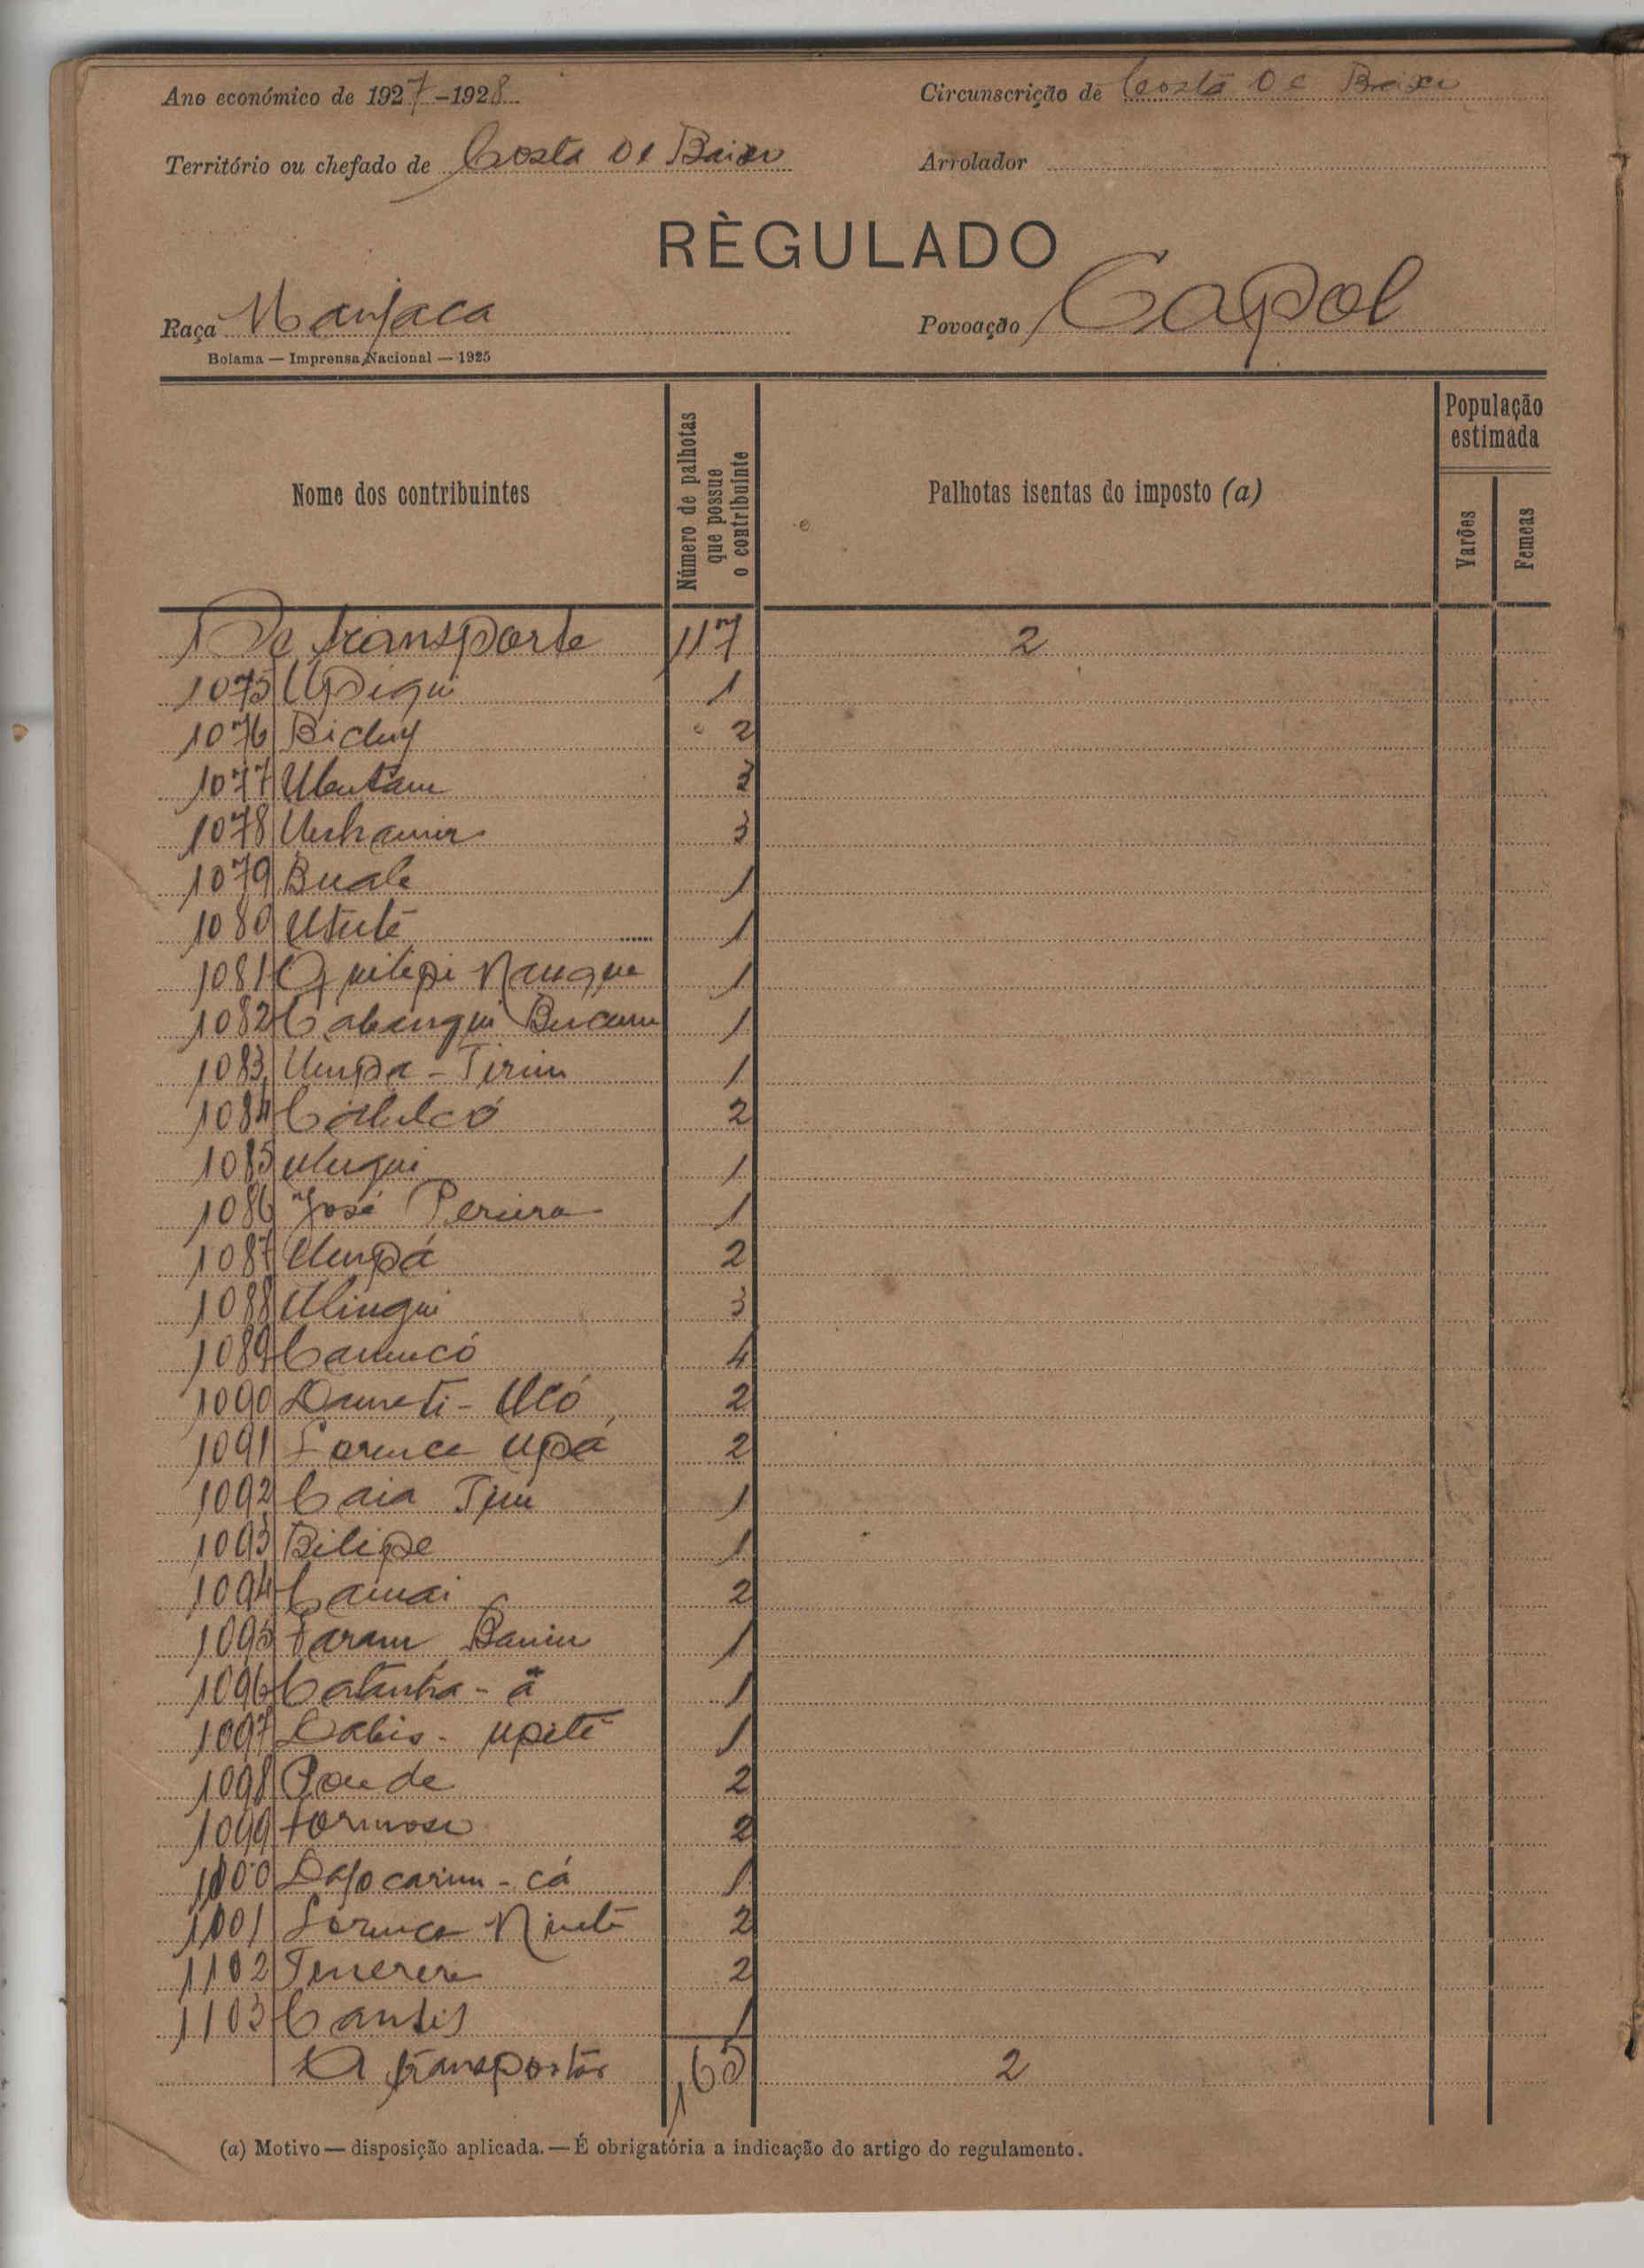 Ano económico de 1927-1928 Circunscrição de Costa De Baixo
Território ou chefado de Costa De Baixo Arrolador
RÈGULADO
Raça Manjaca Povoação Capol
Bolama — Imprensa Nacional — 1925
Nome dos contribuintes
Número de palhotas que possue o contribuinte
Palhotas isentas do imposto (a)
População estimada
Varões
Femeas
De transporte 117 2
1075 Updiqui 1
1076 2
1077
1078 3
1079 Buale 1
1080 Ututé 1
1081 Quitepi Nanque 1
1082 Cabangui 1
1083 Umpa - Tirim 1
1084 2
1085 1
1086 José Pereira 1
1087 Umpá 2
1088 Ulingui 3
1089 Canucó 4
1090 Dameti - Ucó 2
1091 Lorence Upá 2
1092 Caia 1
1093 Bilipe 1
1094 Camai 2
1095 1
1096 1
1097 Dabis - Upeté 1
1098 2
1099 Formoso 2
1100 Dajocarim - cá 1
1101 Lorence 2
1102 Tenerere 2
1103 1
A transportar 165 2
(a) Motivo — disposição aplicada. — É obrigatória a indicação do artigo do regulamento.